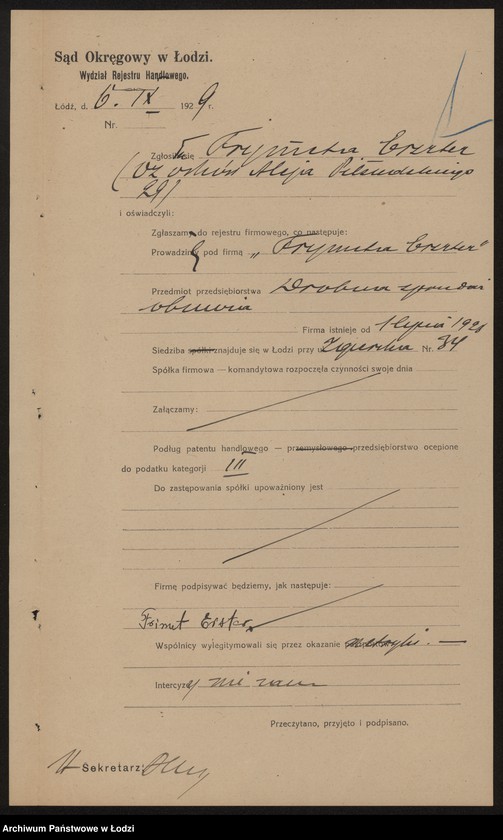 Sąd Okręgowy w Łodzi.
Wydział Rejestru Handlowego.
Łódź, d. 6. IX 1929 r.
Nr.
Zgłosiła się Frymetra Erszter
29)
i oświadczyli:
Zgłaszamy do rejestru firmowego, co następuje:
Prowadzimy pod firmą „Frymetra Erszter"
Przedmiot przedsiębiorstwa Drobna sprzedaż
obuwia
Firma istnieje od 1 lipca 1928
Siedziba spółki znajduje się w Łodzi przy ul. Zgierska Nr. 34
Spółka firmowa — komandytowa rozpoczęła czynności swoje dnia
Załączamy:
Podług patentu handlowego — przemysłowego przedsiębiorstwu ocepione
do podatku kategorji III
Do zastępowania spółki upoważniony jest
Firmę podpisywać będziemy, jak następuje:
Wspólnicy wylegitymowali się przez okazanie metryki. —
Intercyzy nie mam
Przeczytano, przyjęto i podpisano.
Sekretarz:
Archiwum Państwowe w Łodzi